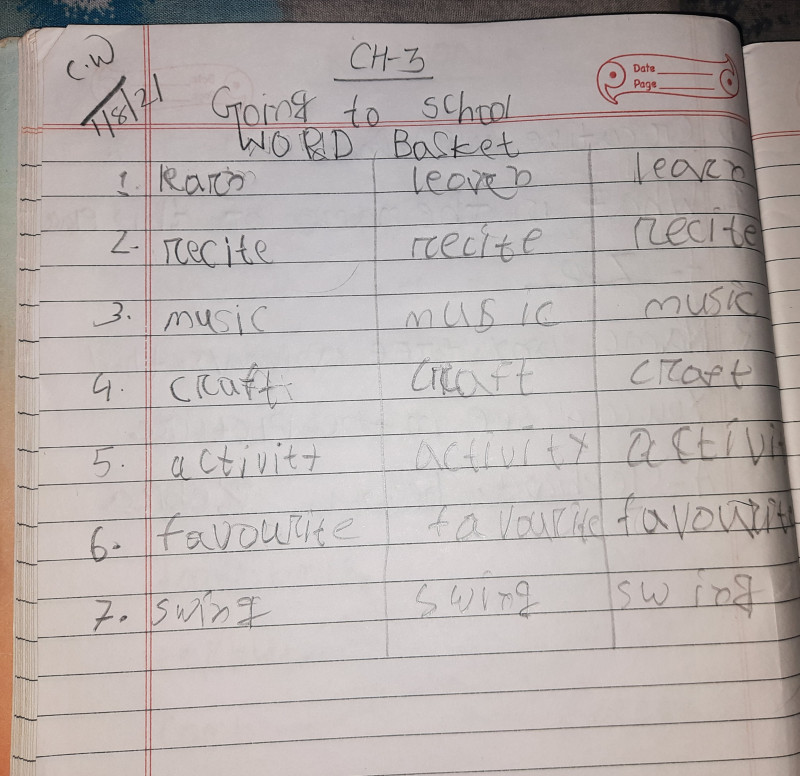 C.W
1/8/21
CH-3
Date
Page
Going to school
WORD Basket
1. learn learn learn
2. recite recite recite
3. music music music
4. craft craft craft
5. activity activity activi
6. favourite favourite favourit
7. swing swing swing